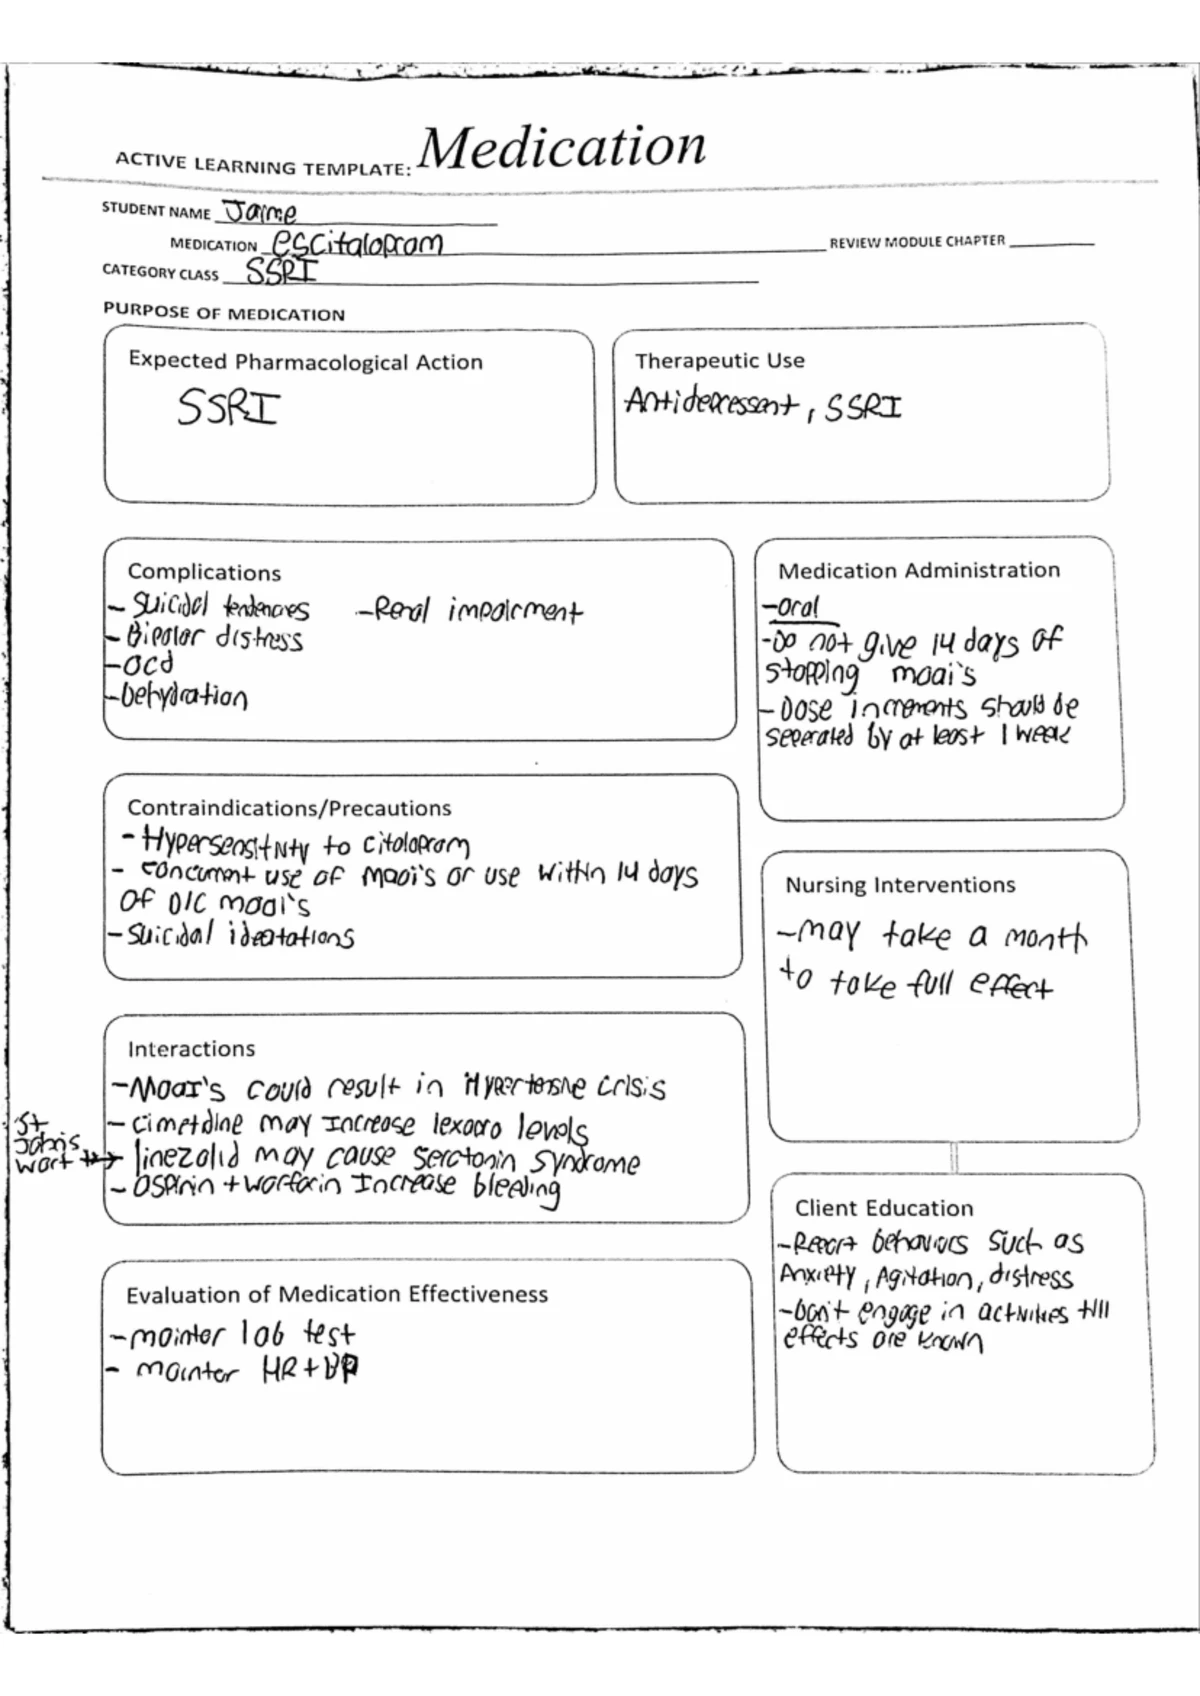 ACTIVE LEARNING TEMPLATE: Medication
STUDENT NAME Jaime
MEDICATION escitalopram REVIEW MODULE CHAPTER
CATEGORY CLASS SSRI
PURPOSE OF MEDICATION
Expected Pharmacological Action
SSRI
Therapeutic Use
Antidepressant, SSRI
Complications
- Suicidal tendencies - Renal impairment
- Bipolar distress
- OCD
- Dehydration
Medication Administration
- oral
- Do not give 14 days of
stopping maoi's
- Dose increments should be
seperated by at least 1 week
Contraindications/Precautions
- Hypersensitivity to citalopram
- concurrent use of maoi's or use within 14 days
of D/C maoi's
- suicidal ideatations
Nursing Interventions
- may take a month
to take full effect
Interactions
- MAOI's could result in Hypertensive crisis
- cimetdine may increase lexapro levels
St Johns wart → linezolid may cause serotonin syndrome
- asparin + warfarin increase bleeding
Client Education
- Report behaviors such as
Anxiety, Agitation, distress
- Don't engage in activities till
effects are known
Evaluation of Medication Effectiveness
- mointor lab test
- mointor HR + BP